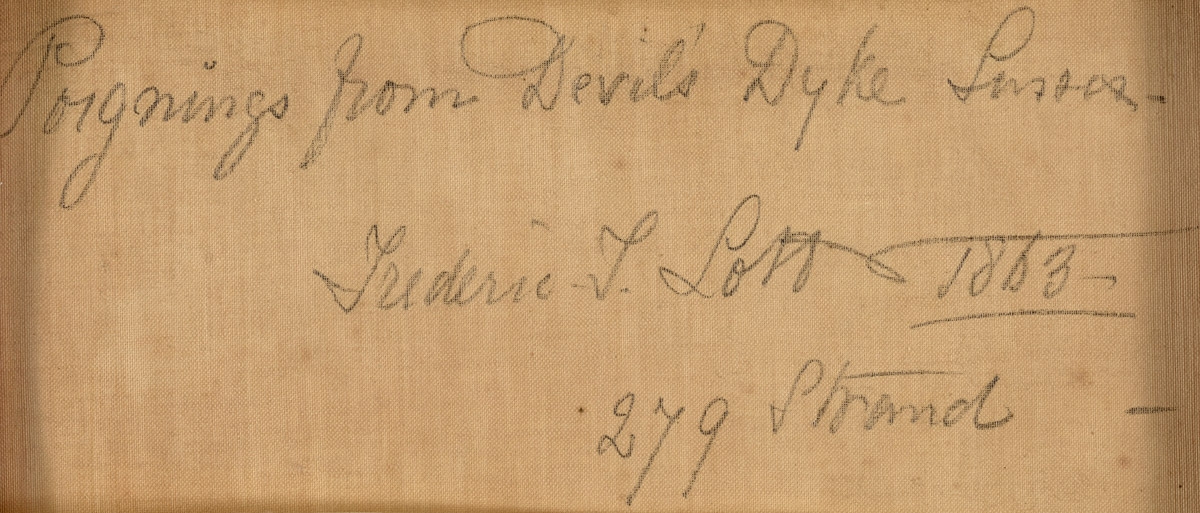 Poignings from Devil's Dyke Sussex -
Frederic T. Lott 1863 -
279 Strand -